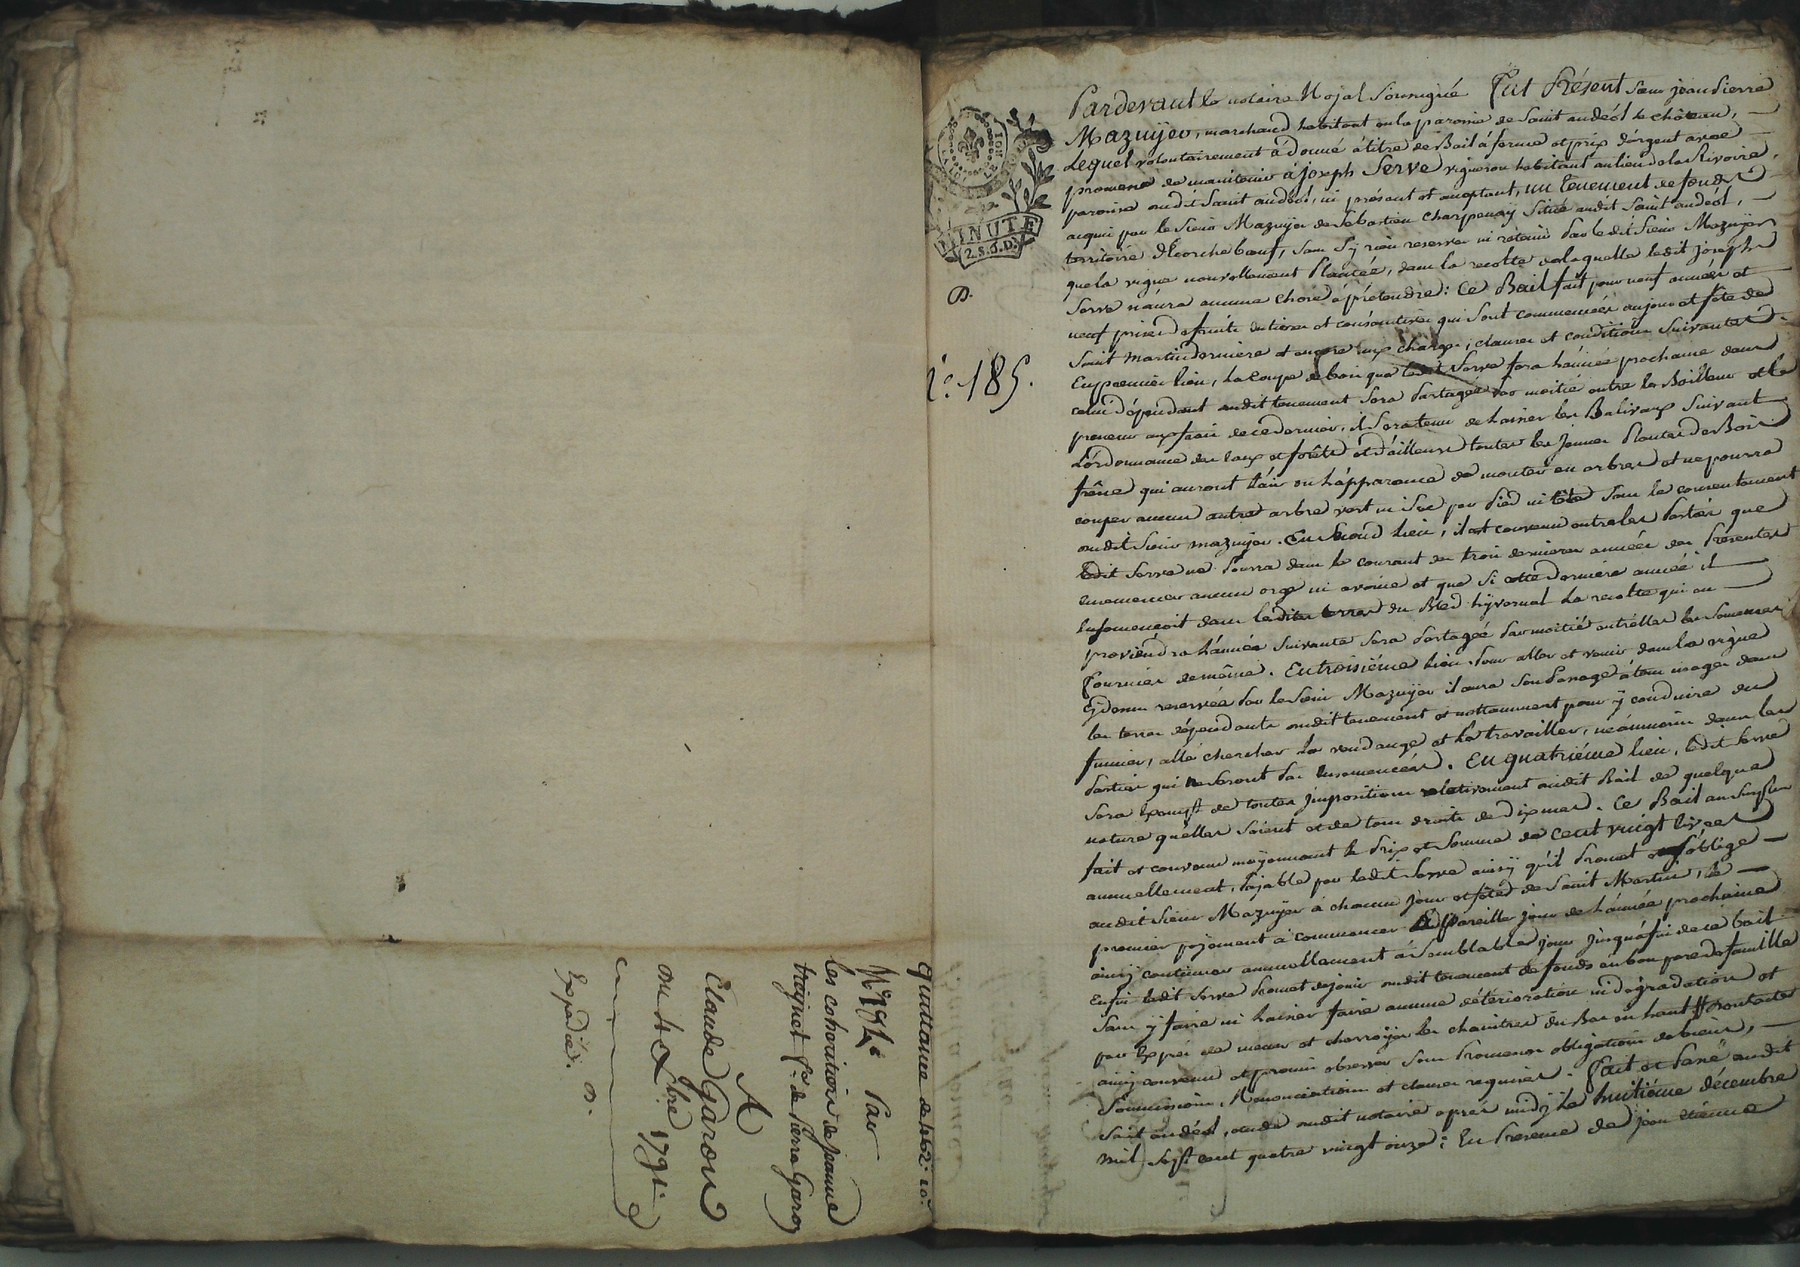 quittance de 462# 10s
N° 194° Par
les cohéritiers de jeanne
traynet fe. de Pierre Garon
A
Claude Garon
du 4 Xbre 1791.
Expédiée.
MINUTE
2.S.6.D.
N°. 185.
Pardevant le notaire Royal soussigné Fut Présent Sieur jean Pierre
Mazuyer, marchand habitant en la paroisse de Saint andéol le château,
Lequel volontairement a donné à titre de Bail à ferme et prix d'argent avec
promesse de maintenir à joseph Serve vigneron habitant au lieu de la Rivoire,
paroisse dudit Saint andéol, ici présent et acceptant, un tenement de fonds
acquis par le Sieur Mazuyer de Sebastien Charpenay Situé audit Saint andéol,
territoire d'Ecorchebœuf, sans S'y rien reserver ni retenir Par ledit Sieur Mazuyer
que la vigne nouvellement Plantée, dans la recolte de laquelle ledit joseph
Serve n'aura aucune chose à prétendre : Ce Bail fait pour neuf années et
neuf prises de fruits entieres et consecutives qui sont commencées au jour et fête de
Saint martin derniere et encore aux charges, clauses et conditions suivantes.
En premier lieu, La Coupe de bois que ledit Serve fera l'année prochaine dans
celui dépendant dudit tenement Sera Partagée Par moitié entre le Bailleur et le
preneur aux frais de ce dernier, il Sera tenu de laisser les Balivaux Suivant
L'ordonnance des Eaux et forêts et d'ailleurs toutes les jeunes Plantes de Bois
frêne qui auront l'air ou l'apparence de monter en arbres et ne pourra
couper aucun autre arbre vert ni Sec par Pied ni tête Sans le consentement
dudit Sieur mazuyer. En Second lieu, il est convenu entre les Parties que
ledit Serve ne Pourra dans le courant des trois dernieres années des Présentes
ensemencer aucun orge ni avoine et que Si cette derniere année il
Ensemençoit dans lesdites terres du Bled hyvernal La recolte qui en
proviendra l'année Suivante Sera Partagée Par moitié entr'elles les Semences
fournies de même. En troisiéme lieu. Pour aller et venir dans la vigne
Cy dessus reservée Par le Sieur Mazuyer il aura Son Passage à tous usages dans
les terres dépendantes dudit tenement et notamment pour y conduire du
fumier, aller chercher La vendange et La travailler, néanmoins dans les
Parties qui ne Seront Pas Ensemencées. En quatriéme lieu, ledit Serve
Sera Exempt de toutes impositions relativement audit Bail de quelque
nature qu'elles Soient et de tous droits de dixmes. Ce Bail au Surplus
fait et convenu moyennant le Prix et Somme de Cent vingt livres
annuellement, Payable par ledit Serve ainsy qu'il Promet et s'oblige
audit Sieur Mazuyer à chacun jour et fête de Saint Martin, le
premier payement à commencer à Pareille jour de l'année prochaine
ainsy continuer annuellement à Semblable jour jusqu'à fin de ce bail
Enfin ledit Serve Promet de jouir dudit tenement de fonds en bon pere de famille
Sans y faire ni laisser faire aucune détérioration ni dégradation et
par Exprès de mener et charroyer les chaintres du Bas en haut
ainsy convenu et promis observer Sous Promesses obligations de biens,
Soumissions, Renonciations et clauses requises. Fait et Passé audit
Saint andéol, étude dudit notaire après midy le huitiéme décembre
mil Sept cent quatre vingt onze : En Présence de jean Etienne